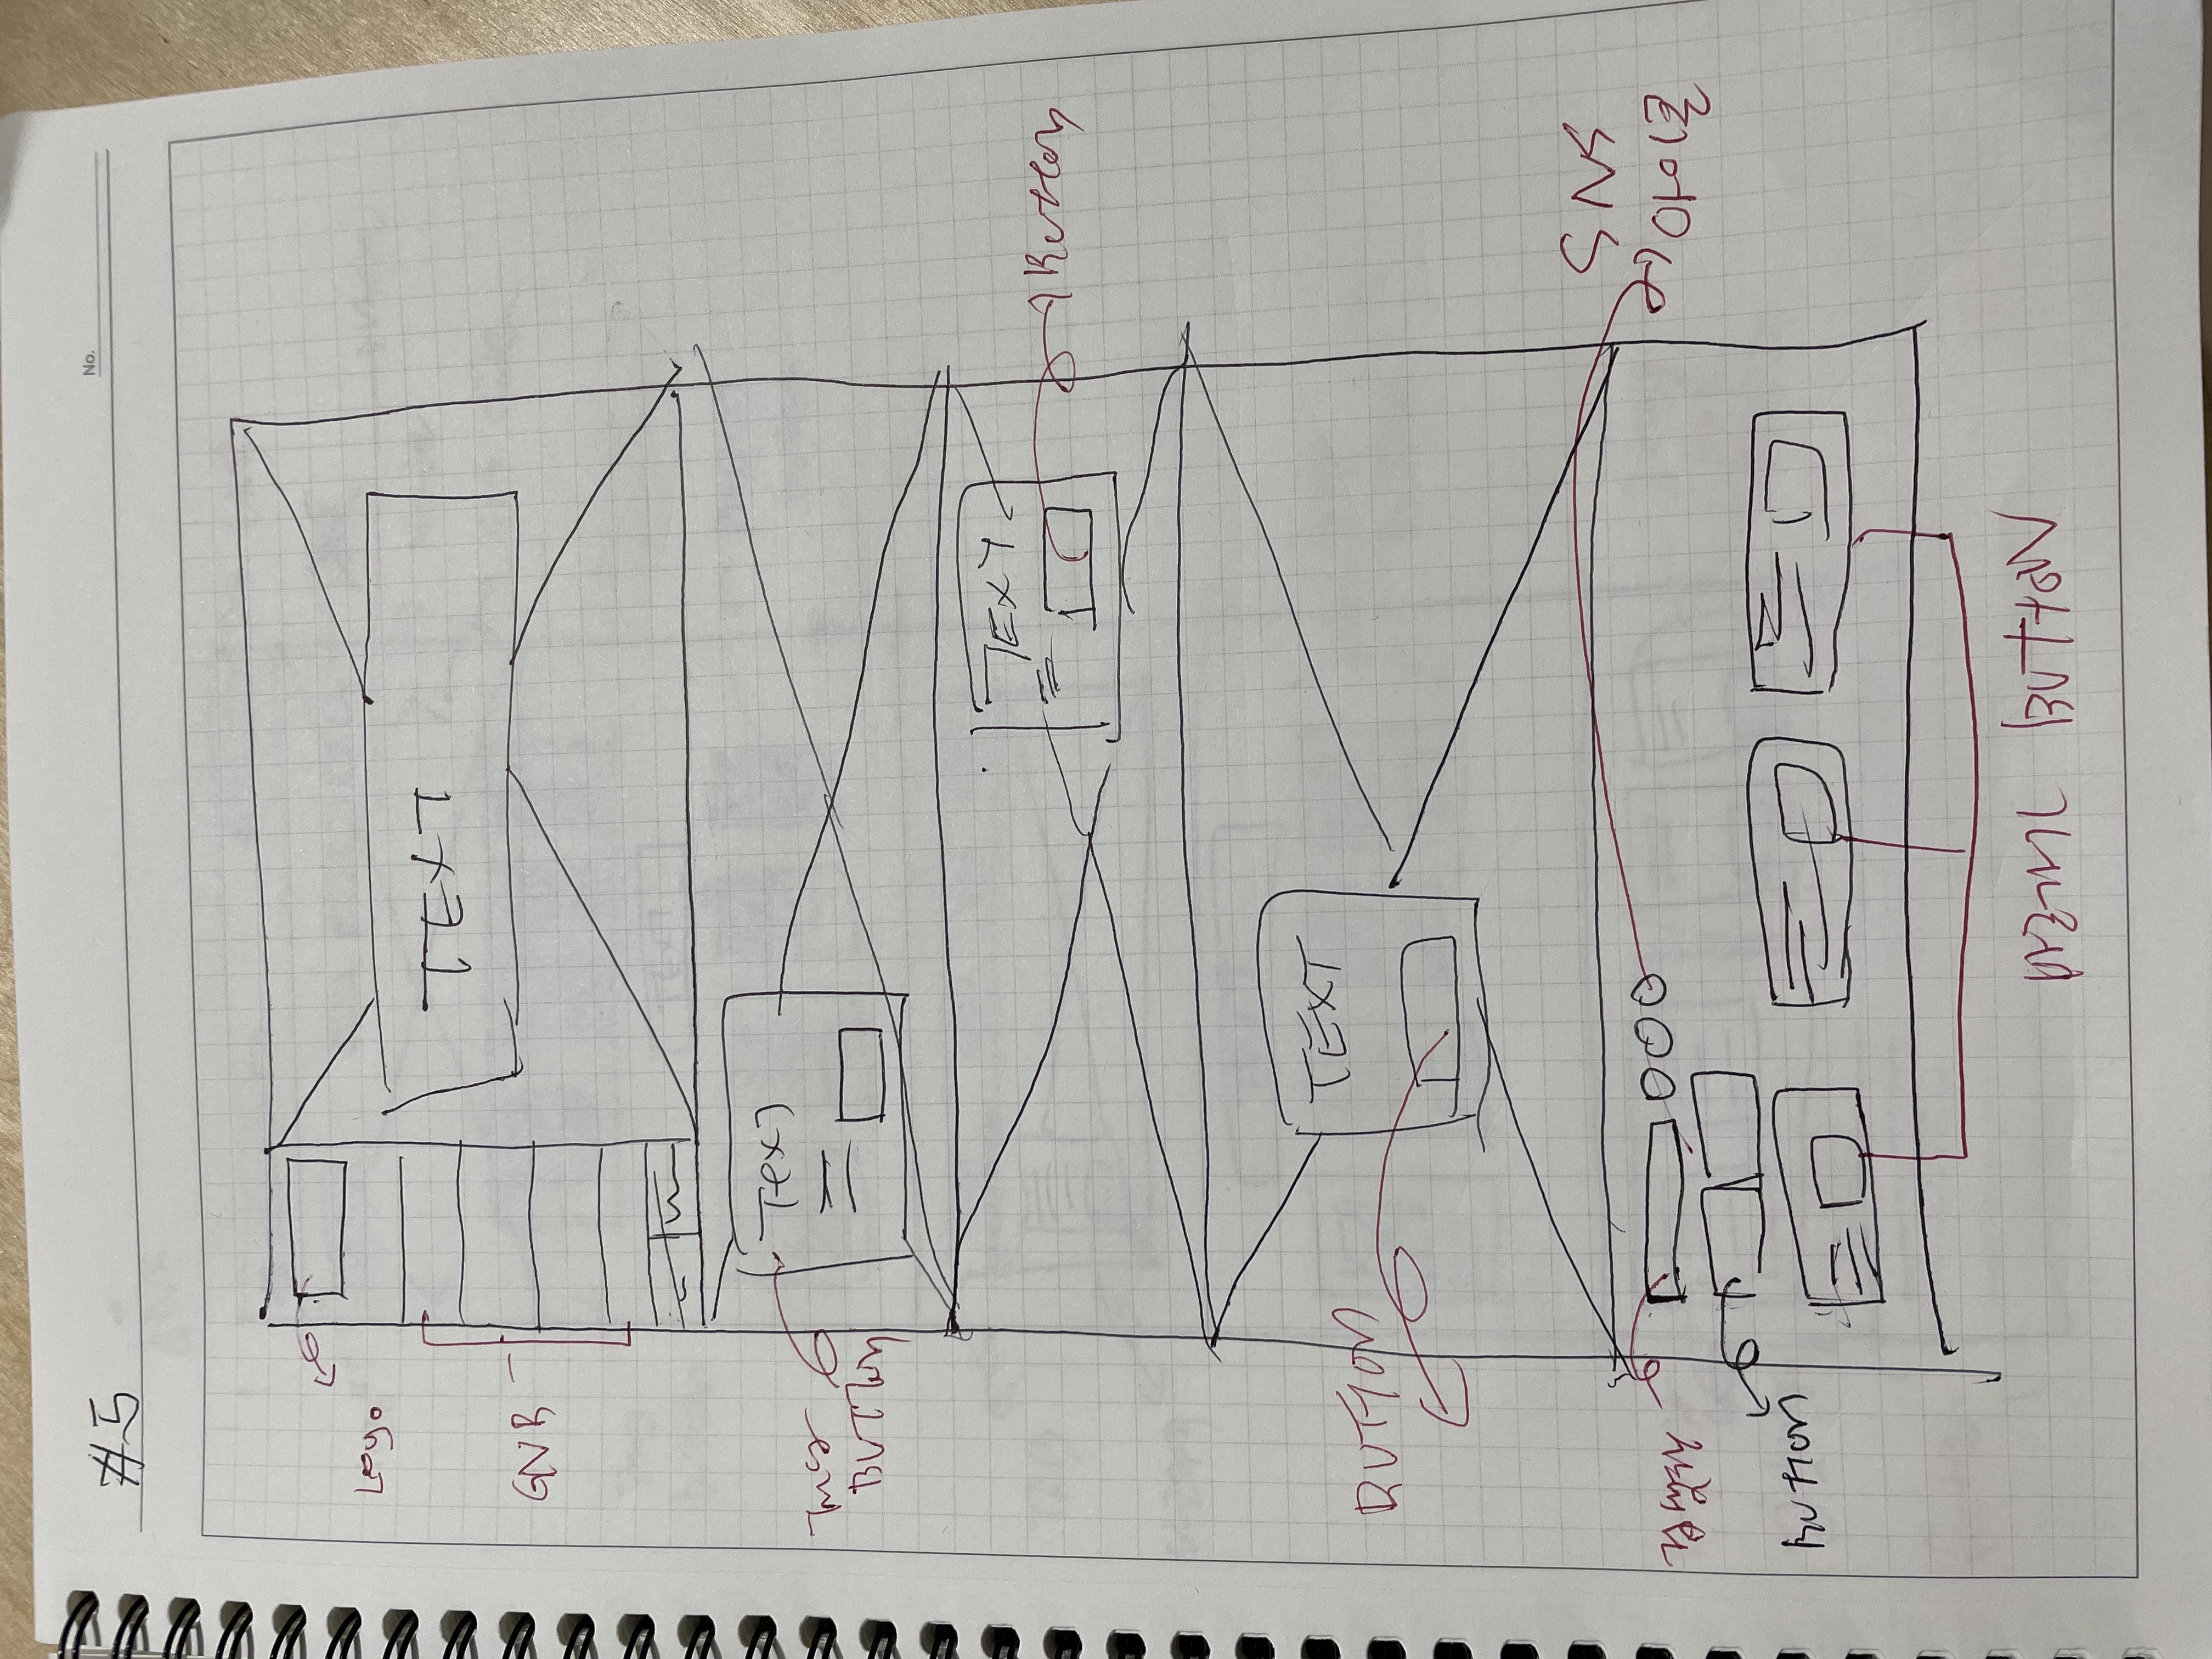 #5
No.
Logo
TEXT
GNB
Text
BUTTON
TEXT
Button
TEXT
BUTTON
SNS
아이콘
검색창
BUTTON
바로가기 BUTTON